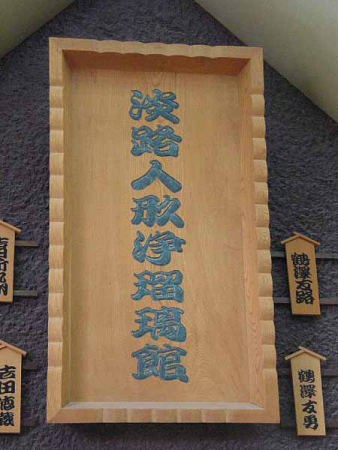 淡路人形浄瑠璃館
鶴澤友路
鶴澤友勇